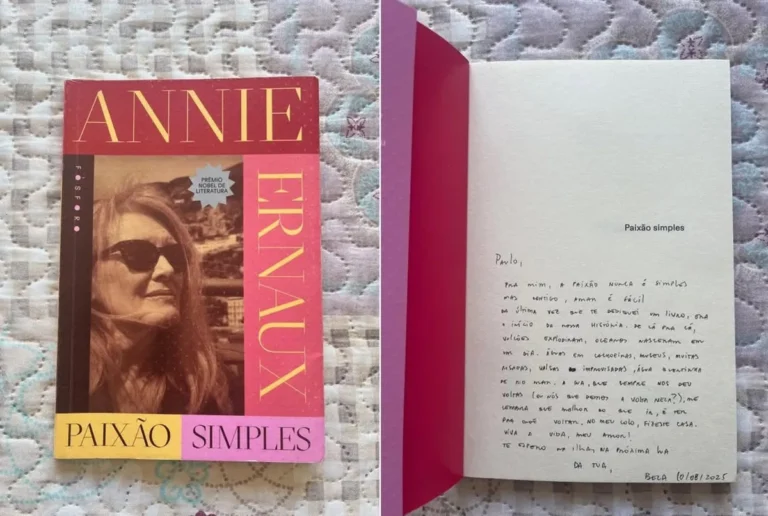 ANNIE
ERNAUX
FÓSFORO
PRÊMIO
NOBEL DE
LITERATURA
PAIXÃO SIMPLES
Paixão simples
Paulo,
PRA MIM, A PAIXÃO NUNCA É SIMPLES
MAS CONTIGO, AMAR É FÁCIL!
DA ÚLTIMA VEZ QUE TE DEDIQUEI UM LIVRO, ERA
O INÍCIO DA NOSSA HISTÓRIA. DE LÁ PRA CÁ,
VULCÕES EXPLODIRAM, OCEANOS NASCERAM EM
UM DIA. ÁGUAS EM CACHOEIRAS, MUSEUS, MUITAS
RISADAS, VALSAS IMPROVISADAS, ÁGUA QUENTINHA
DE NO MAR. A LUA, QUE SEMPRE NOS DEU
VOLTAS (OU NÓS QUE DEMOS A VOLTA NELA?), ME
LEMBRA QUE MELHOR DO QUE IR, É TER
PRA ONDE VOLTAR. NO MEU COLO, FIZESTE CASA.
VIVA A VIDA, MEU AMOR!
TE ESPERO NA ILHA, NA PRÓXIMA LUA
DA TUA,
10/08/2025